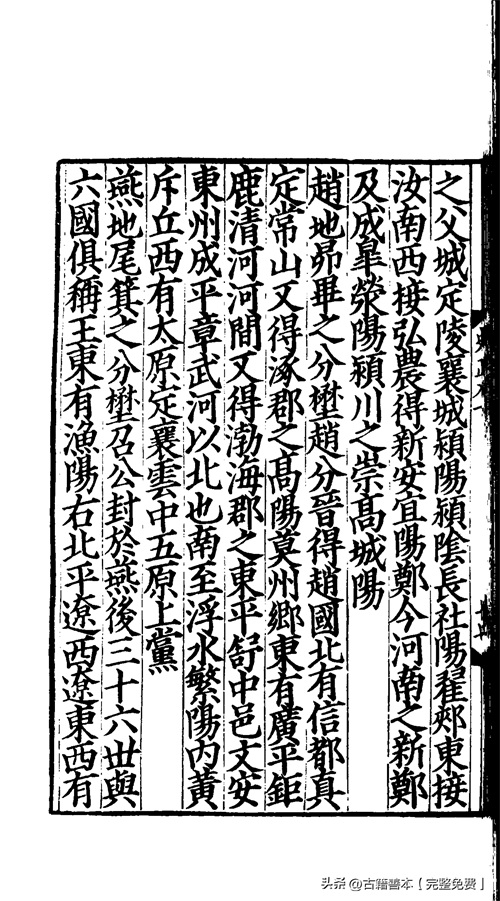 之父城定陵襄城潁陽潁陰長社陽翟郟東接
汝南西接弘農得新安宜陽鄭今河南之新鄭
及成臯滎陽潁川之崇髙城陽
趙地昴畢之分壄趙分晉得趙國北有信都真
定常山又得涿郡之髙陽莫州鄉東有廣平鉅
鹿清河河間又得渤海郡之東平舒中邑文安
東州成平章武河以北也南至浮水繁陽内黃
斥丘西有太原定襄雲中五原上黨
燕地尾箕之分壄召公封於燕後三十六世與
六國俱稱王東有漁陽右北平遼西遼東西有
头条 @古籍善本【完整免费】